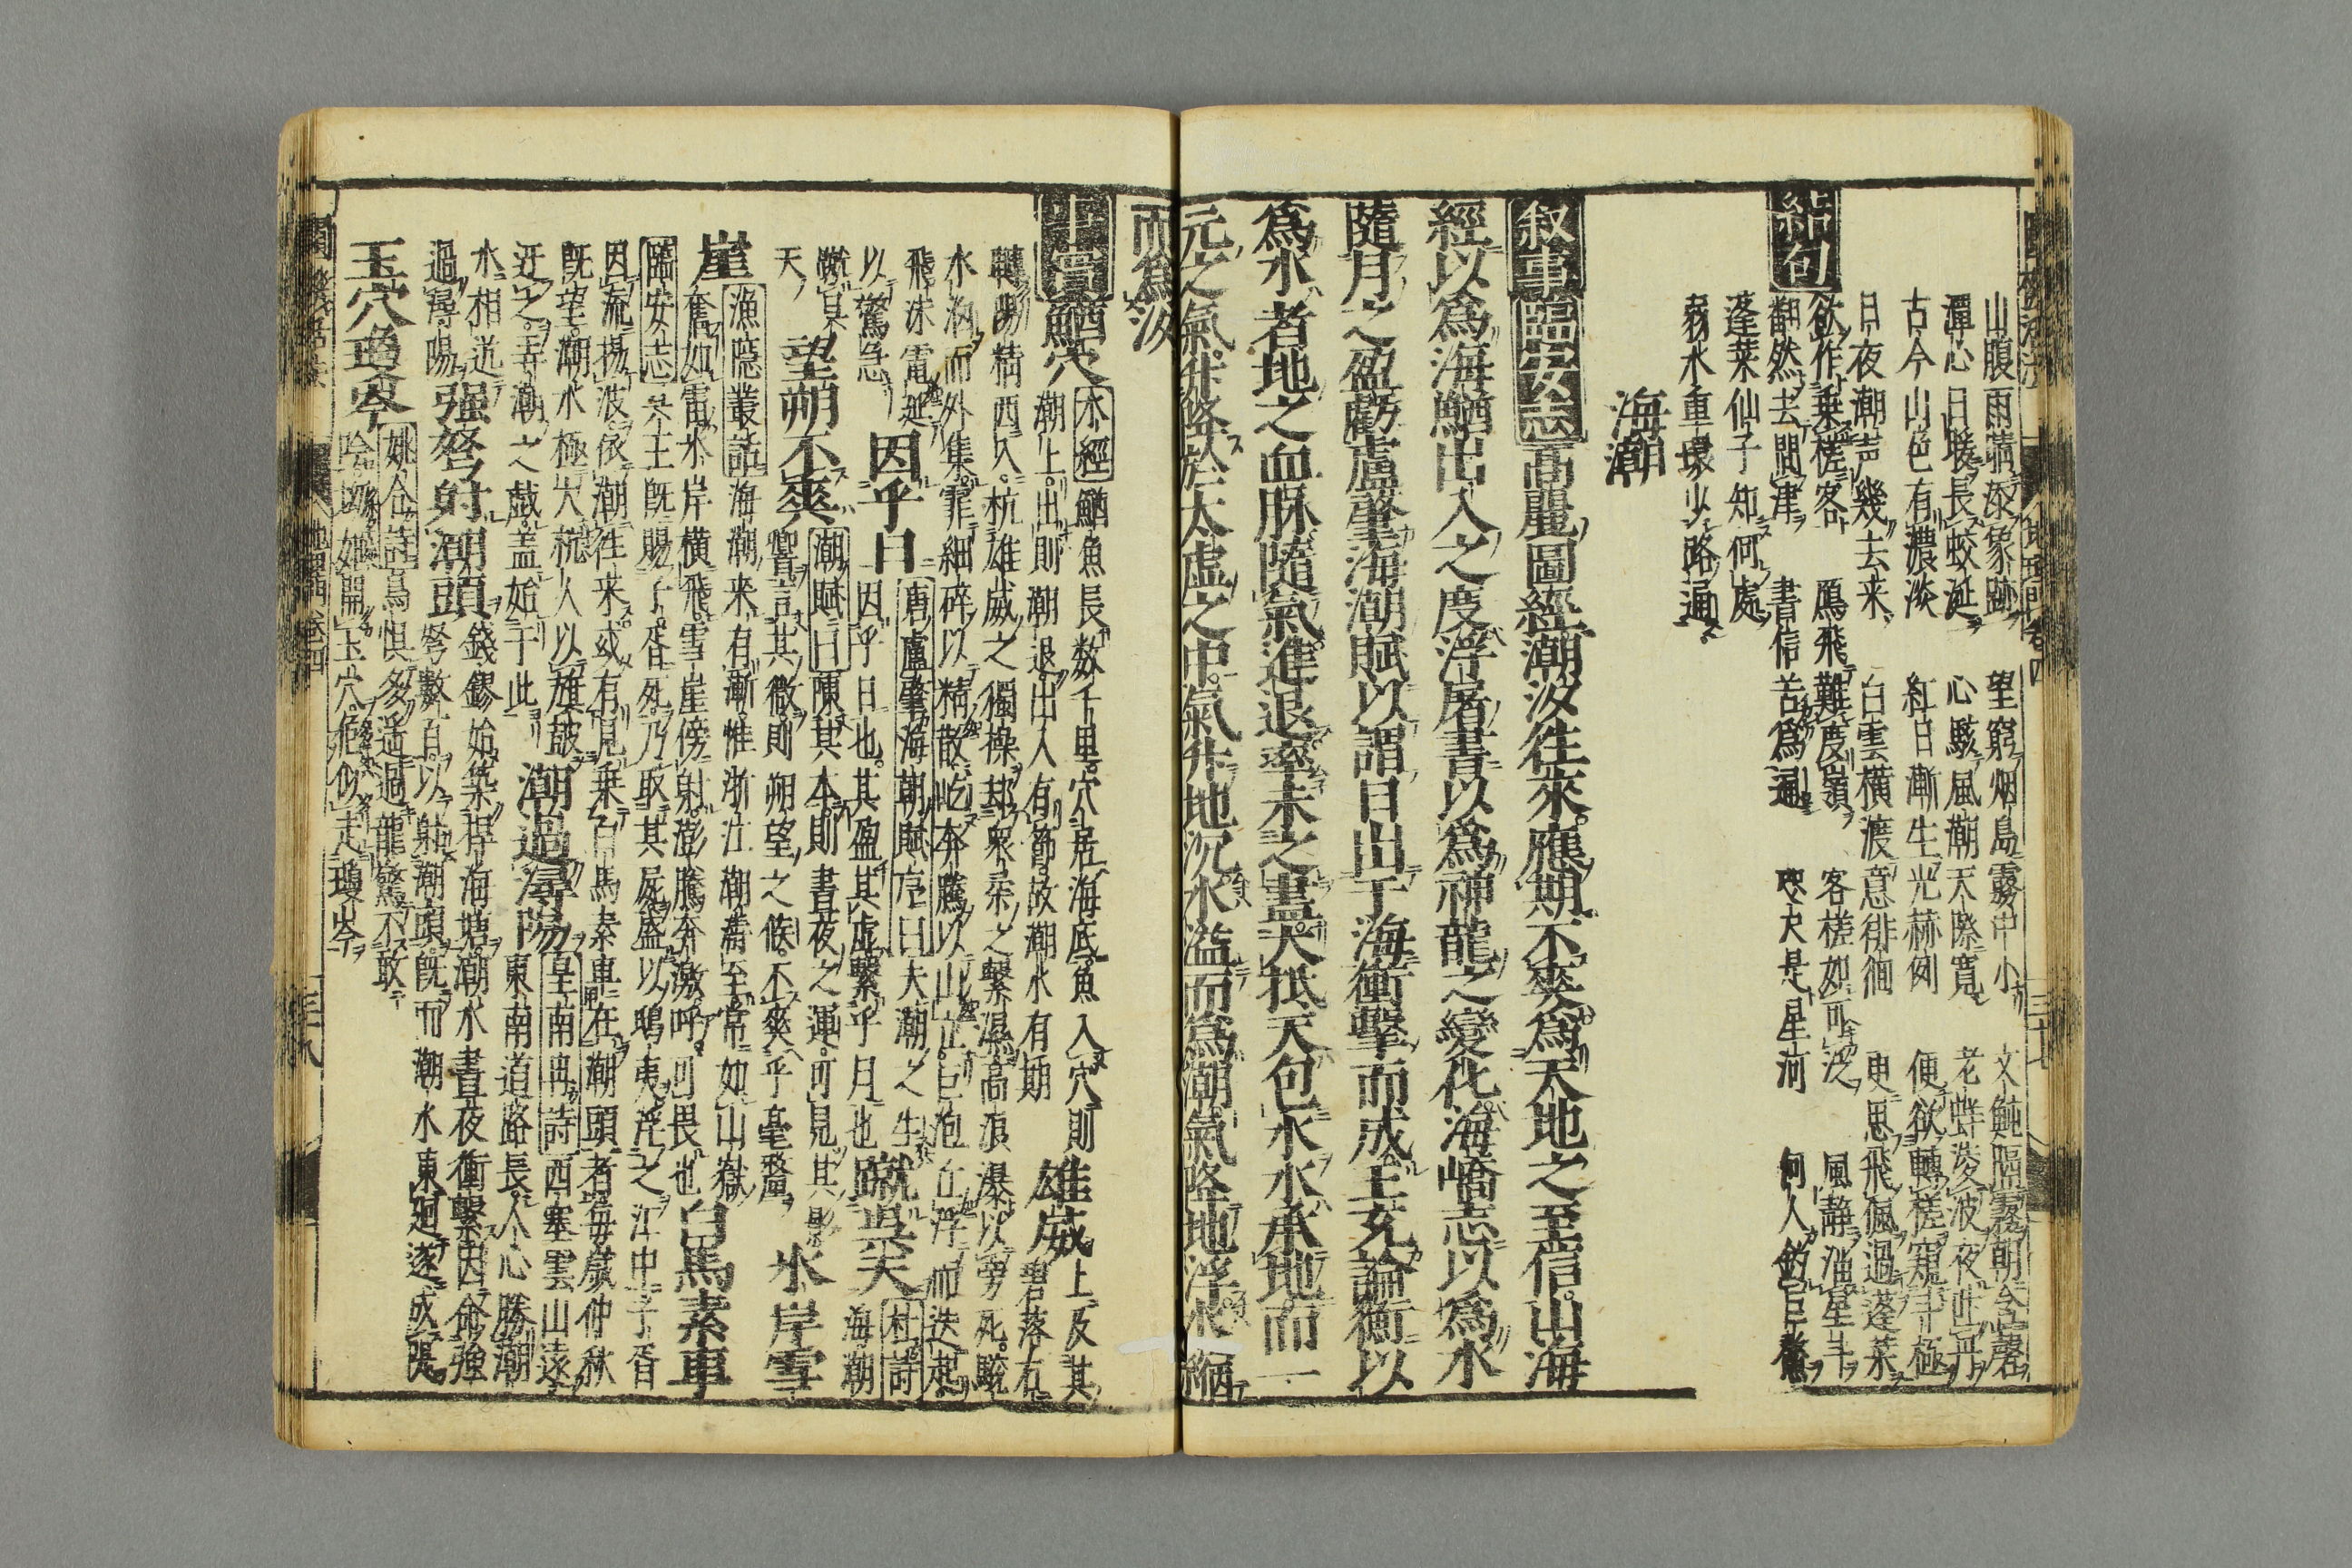 山腹雨晴添象跡 望窮烟島霧中小 文魮隔霧朝含磬
潭心日暖長蛟涎 心駭風潮天際寛 老蜯凌波夜吐丹
古今山色有濃淡 紅日漸生光赫例 便欲轉槎窺斗極
日夜潮声幾去来 白雲横渡意徘徊 更思飛楓過蓬莱
結句
欲作乗槎客 鴈飛難度嶺 客槎如可泛 風静淄星斗
翻然去問津 書信若為通 咫尺是星河 何人釣巨鰲
蓬莱仙子知何處
弱水重環少路通
海潮
叙事 臨安志 高麗圖經潮汐往來應期不爽為天地之至信山海
經以為海鰌出入之度浮屠書以為神龍之變化海嶠志以為水
隨月之盈虧盧肇海潮賦以謂日出于海衝擊而成王充論衡以
為水者地之血脉隨氣進退率未之盡大抵天包水水承地而一
元之氣升降於太虚之中氣升地沉水溢而為潮氣降地浮水縮
而為汐
鰌穴 水經 鰌魚長数千里穴居海底魚入穴則
潮上出則潮退出入有節故潮水有期
雄威 上及其
碧落右
轉陽精西入杭雄威之獨操却衆柔之繫濕高浪瀑以旁死驗
水汹而外集霏細碎以精散屹奔騰以山立巨泡丘浮而迭起
飛沫電延
以驚急
因乎日 唐盧肇海朝賦序曰 夫潮之生
因乎日也其盈其虚繫乎月也
蹴呉天 杜詩
海潮
蹴呉
天
望朔不爽 潮賦曰 陳其本則晝夜之運可見其影
響言其微則朔望之候不爽乎毫釐
水岸雪
崖 漁隠叢話 海潮来有漸惟浙江潮濤至常如山嶽
奮如雷水岸横飛雪崖傍射澎騰奔激吁可畏也
白馬素車
臨安志 呉王既賜子胥死乃取其屍盛以鴟夷浮之江中子胥
因流揚波依潮往来或有見乗白馬素車在潮頭者毎歳仲秋
既望潮水極大杭人以旗皷
迓之弄潮之戯蓋始于此
潮過潯陽 皇甫冉詩 西塞雲山遠
東南道路長人心勝潮
水相送
過潯陽
强弩射潮頭 錢鏐始築捍海塘潮水晝夜衝撃因命強
弩數百以射潮頭既而潮水東廻遂成隄
玉穴瑤岑 姚合詩 鳥惧多遥過龍驚不敢
吟㘭始開玉穴危似走瓊岑
三十七